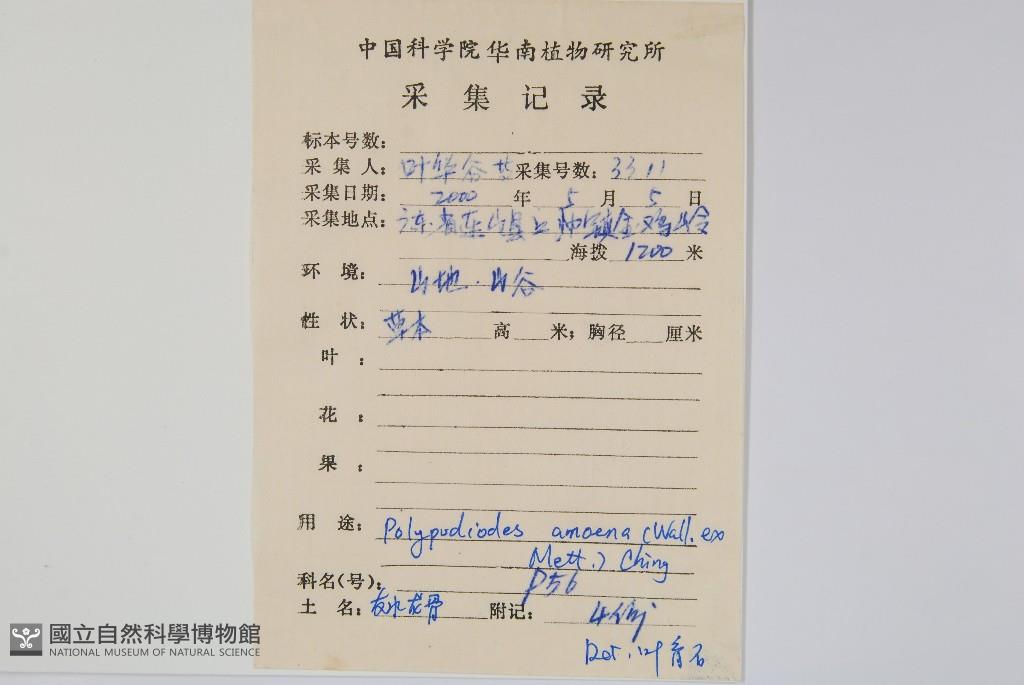 中国科学院华南植物研究所
采集记录
标本号数：
采集人：叶华谷等 采集号数：3311
采集日期：2000年5月5日
采集地点：广东省连山县上帅镇金鸡岭
海拨1200米
环境：山地.山谷
性状：草本 高 米；胸径 厘米
叶：
花：
果：
用途：Polypodiodes amoena (Wall. ex
Mett.) Ching
科名(号)： P56
土名：友水龙骨 附记：4份
Det. 叶育石
國立自然科學博物館
NATIONAL MUSEUM OF NATURAL SCIENCE